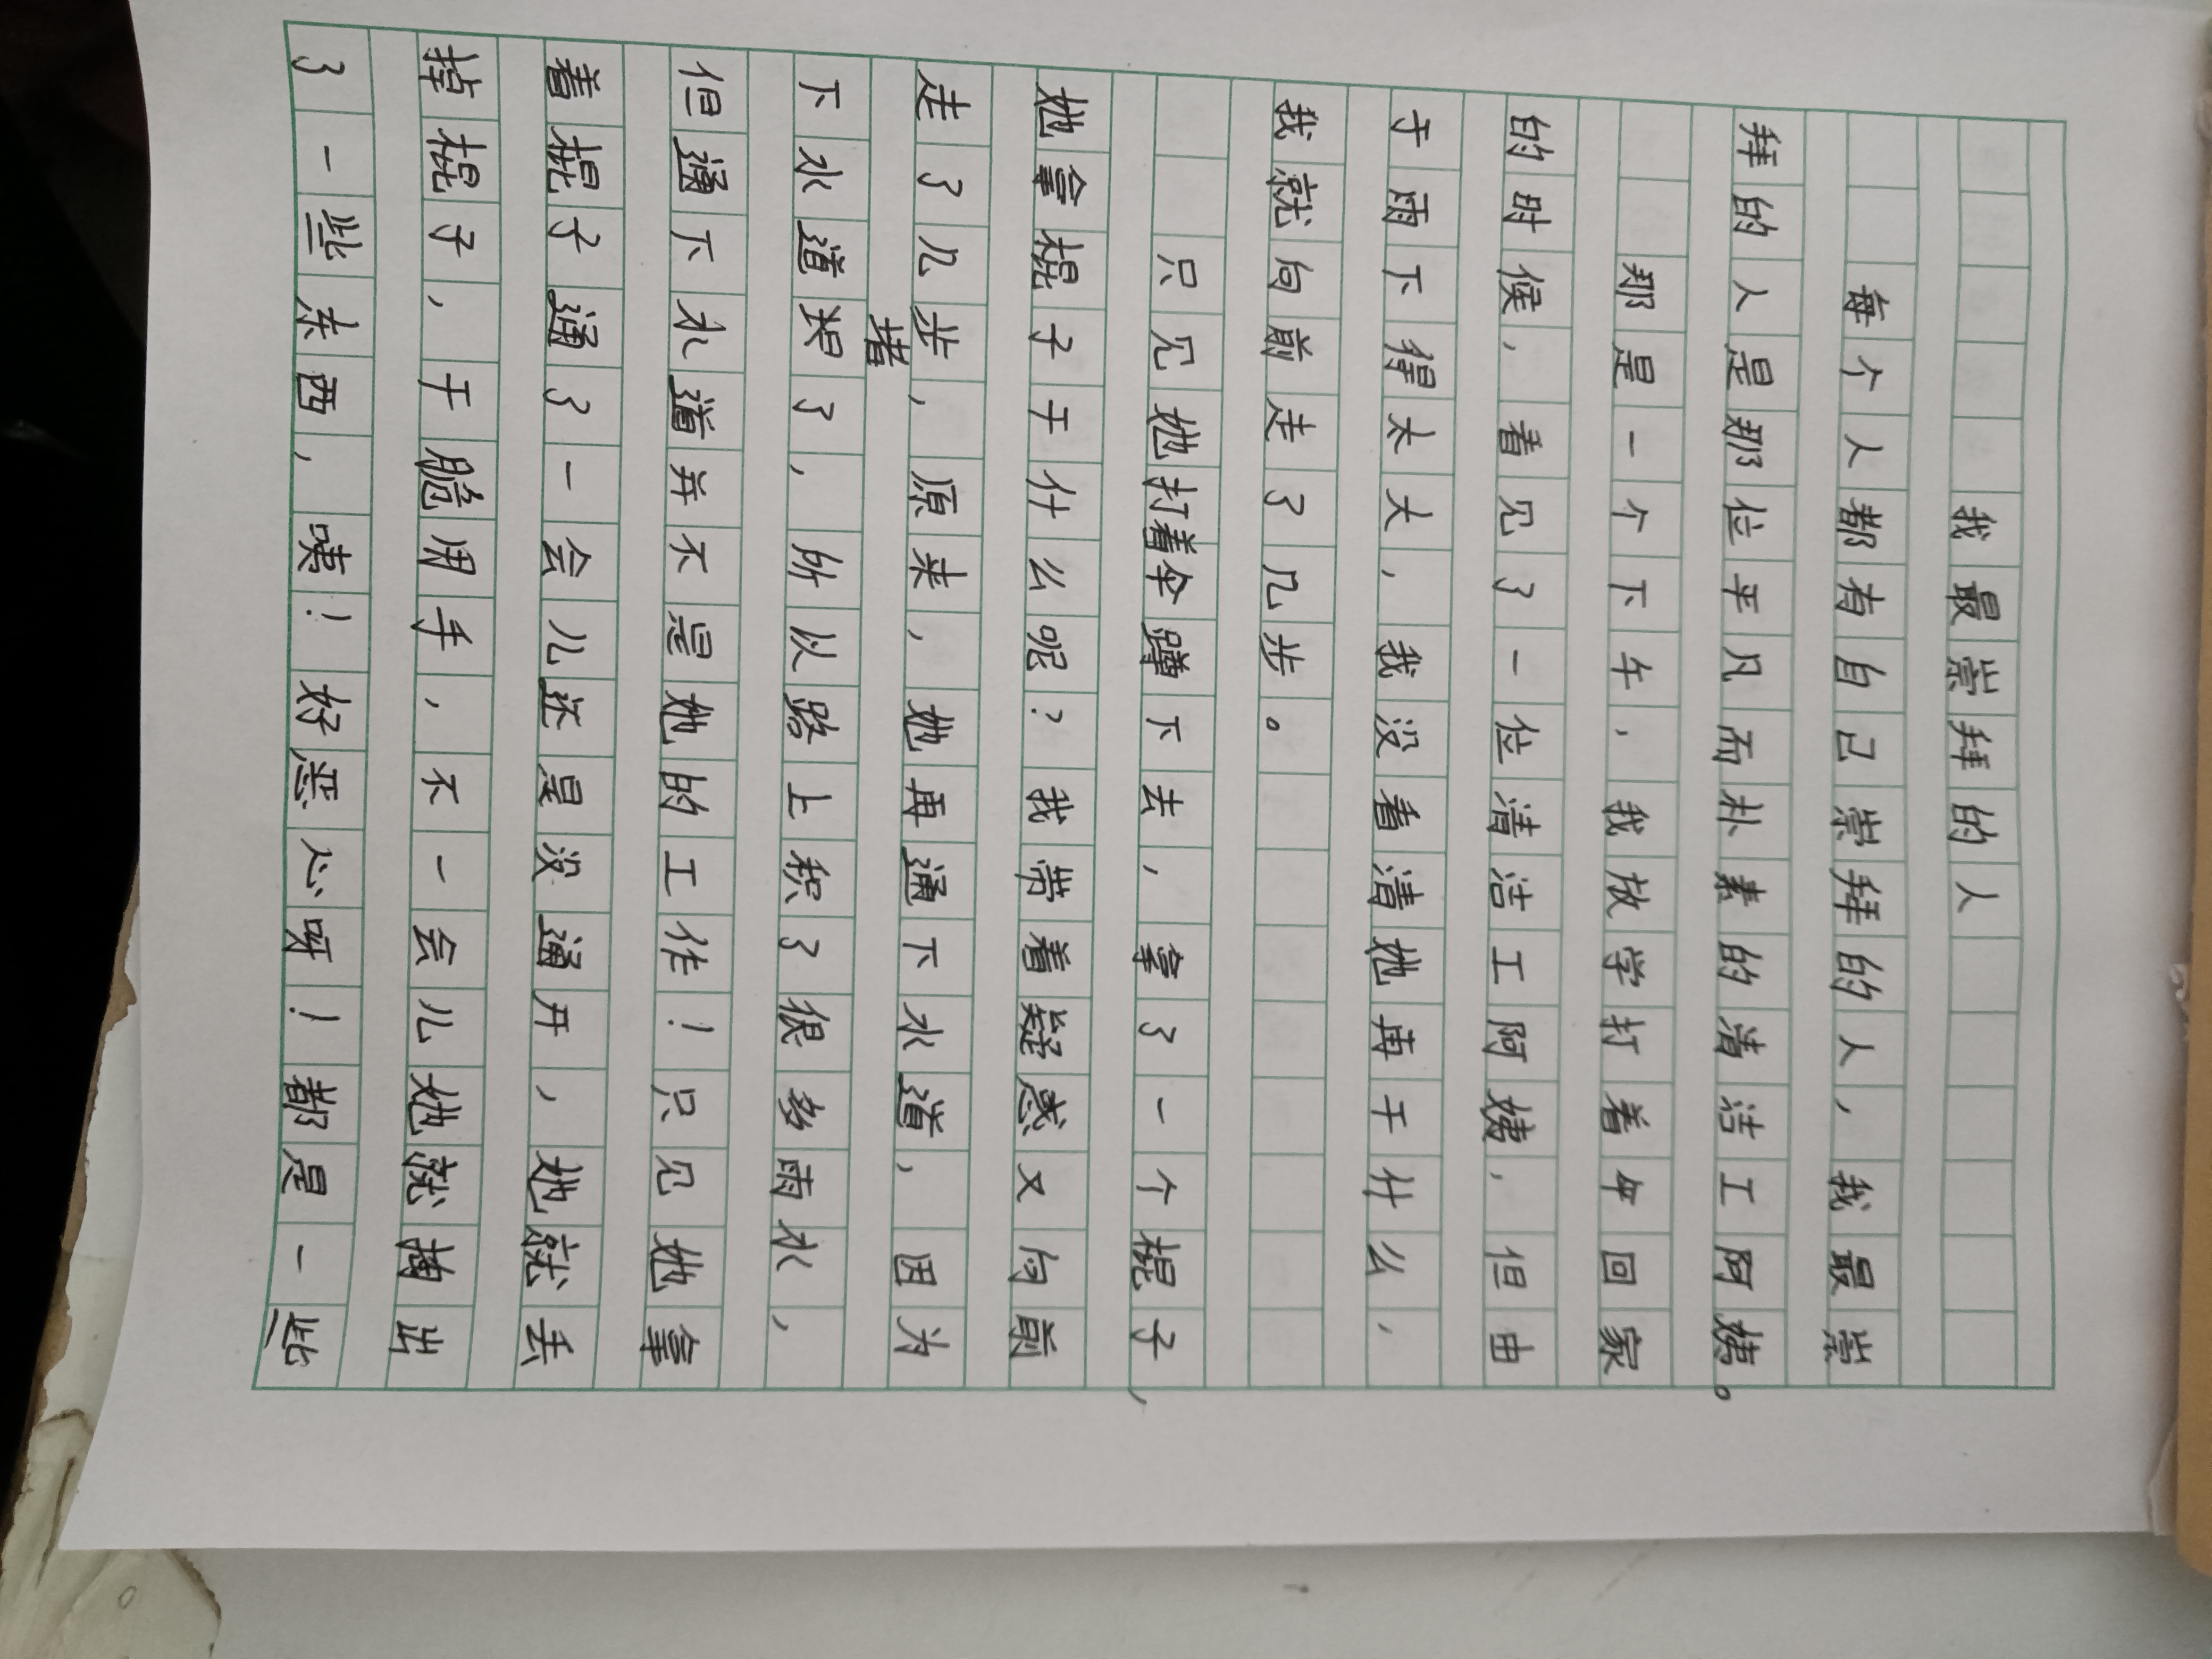 我最崇拜的人
每个人都有自己崇拜的人,我最崇
拜的人是那位平凡而朴素的清洁工阿姨。
那是一个下午,我放学打着伞回家
的时候,看见了一位清洁工阿姨,但由
于雨下得太大,我没看清她再干什么,
我就向前走了几步。
只见她打着伞蹲下去,拿了一个棍子,
她拿棍子干什么呢?我带着疑惑又向前
走了几步,原来,她再通下水道,因为
堵
下水道了,所以路上积了很多雨水,
但通下水道并不是她的工作!只见她拿
着棍子通了一会儿还是没通开,她就丢
掉棍子,干脆用手,不一会儿她就掏出
了一些东西,咦!好恶心呀!都是一些